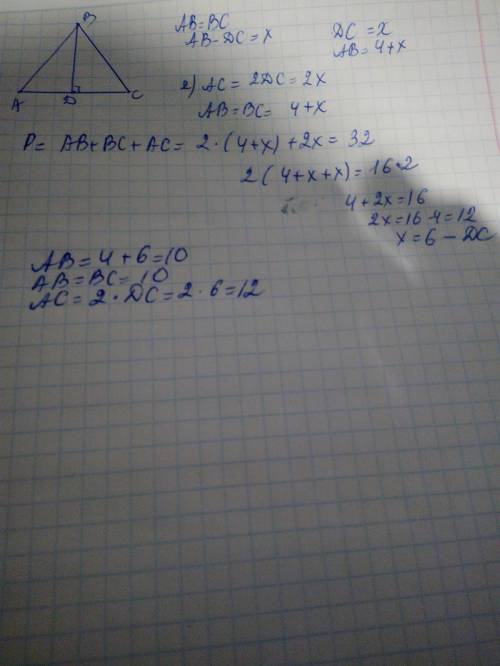 B
A
D
C
AB=BC
AB-DC=x
DC=x
AB=4+x
2) AC=2DC=2x
AB=BC=4+x
P= AB+BC+AC= 2·(4+x)+2x=32
2(4+x+x)=16·2
4+2x=16
2x=16-4=12
x=6-DC
AB=4+6=10
AB=BC=10
AC=2·DC=2·6=12